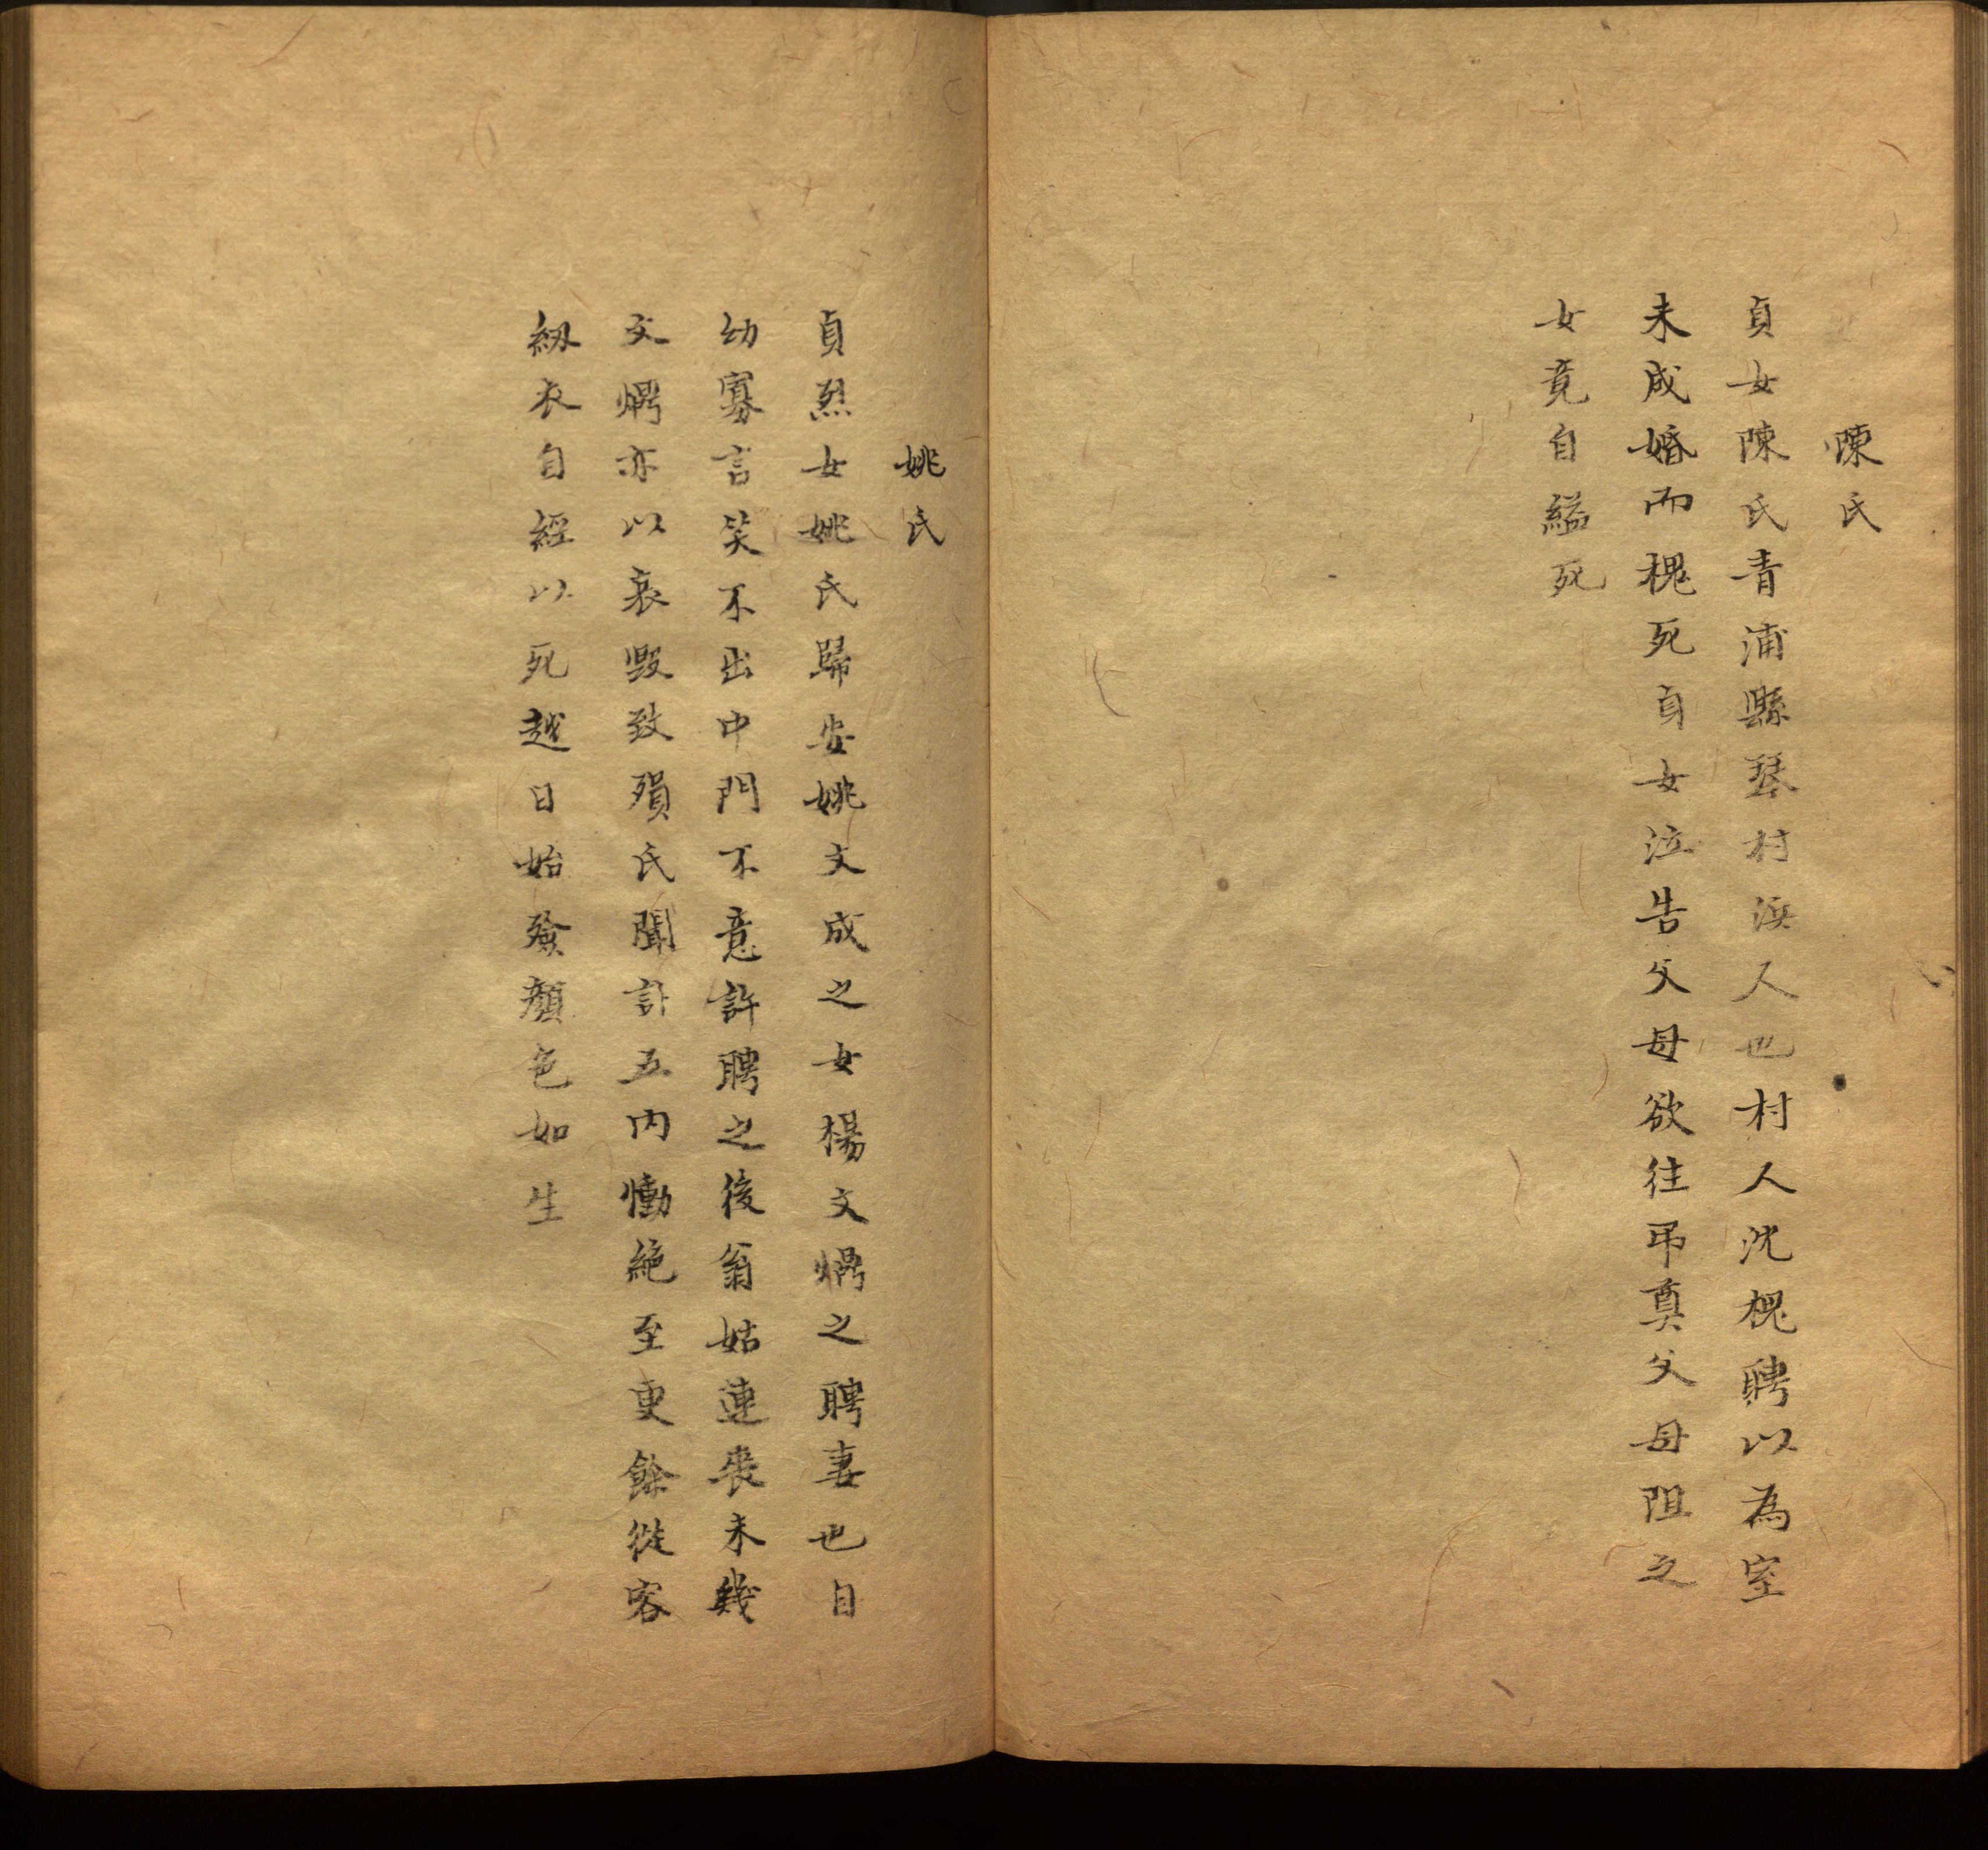 陳氏
貞女陳氏青浦縣琴村浜人也村人沈槐聘以為室
未成婚而槐死貞女泣告父母欲往吊奠父母阻之
女竟自縊死
姚氏
貞烈女姚氏歸安姚文成之女楊文燆之聘妻也自
幼寡言笑不出中門不意許聘之後翁姑連喪未幾
文燆亦以哀毀致殞氏聞訃五内慟絶至更餘從容
紉衣自經以死越日始殮顏色如生